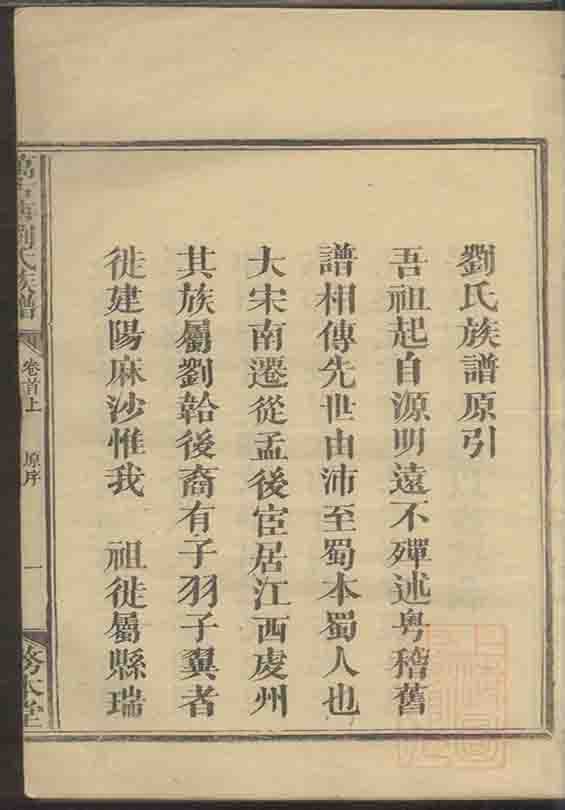 劉氏族譜原引
吾祖起自源明遠不殫述粤稽舊
譜相傳先世由沛至蜀本蜀人也
大宋南遷從孟後宦居江西虔州
其族屬劉韐後裔有子羽子翼者
徙建陽麻沙惟我 祖徙屬縣瑞
劉氏族譜
卷首上
原序
一
務本堂